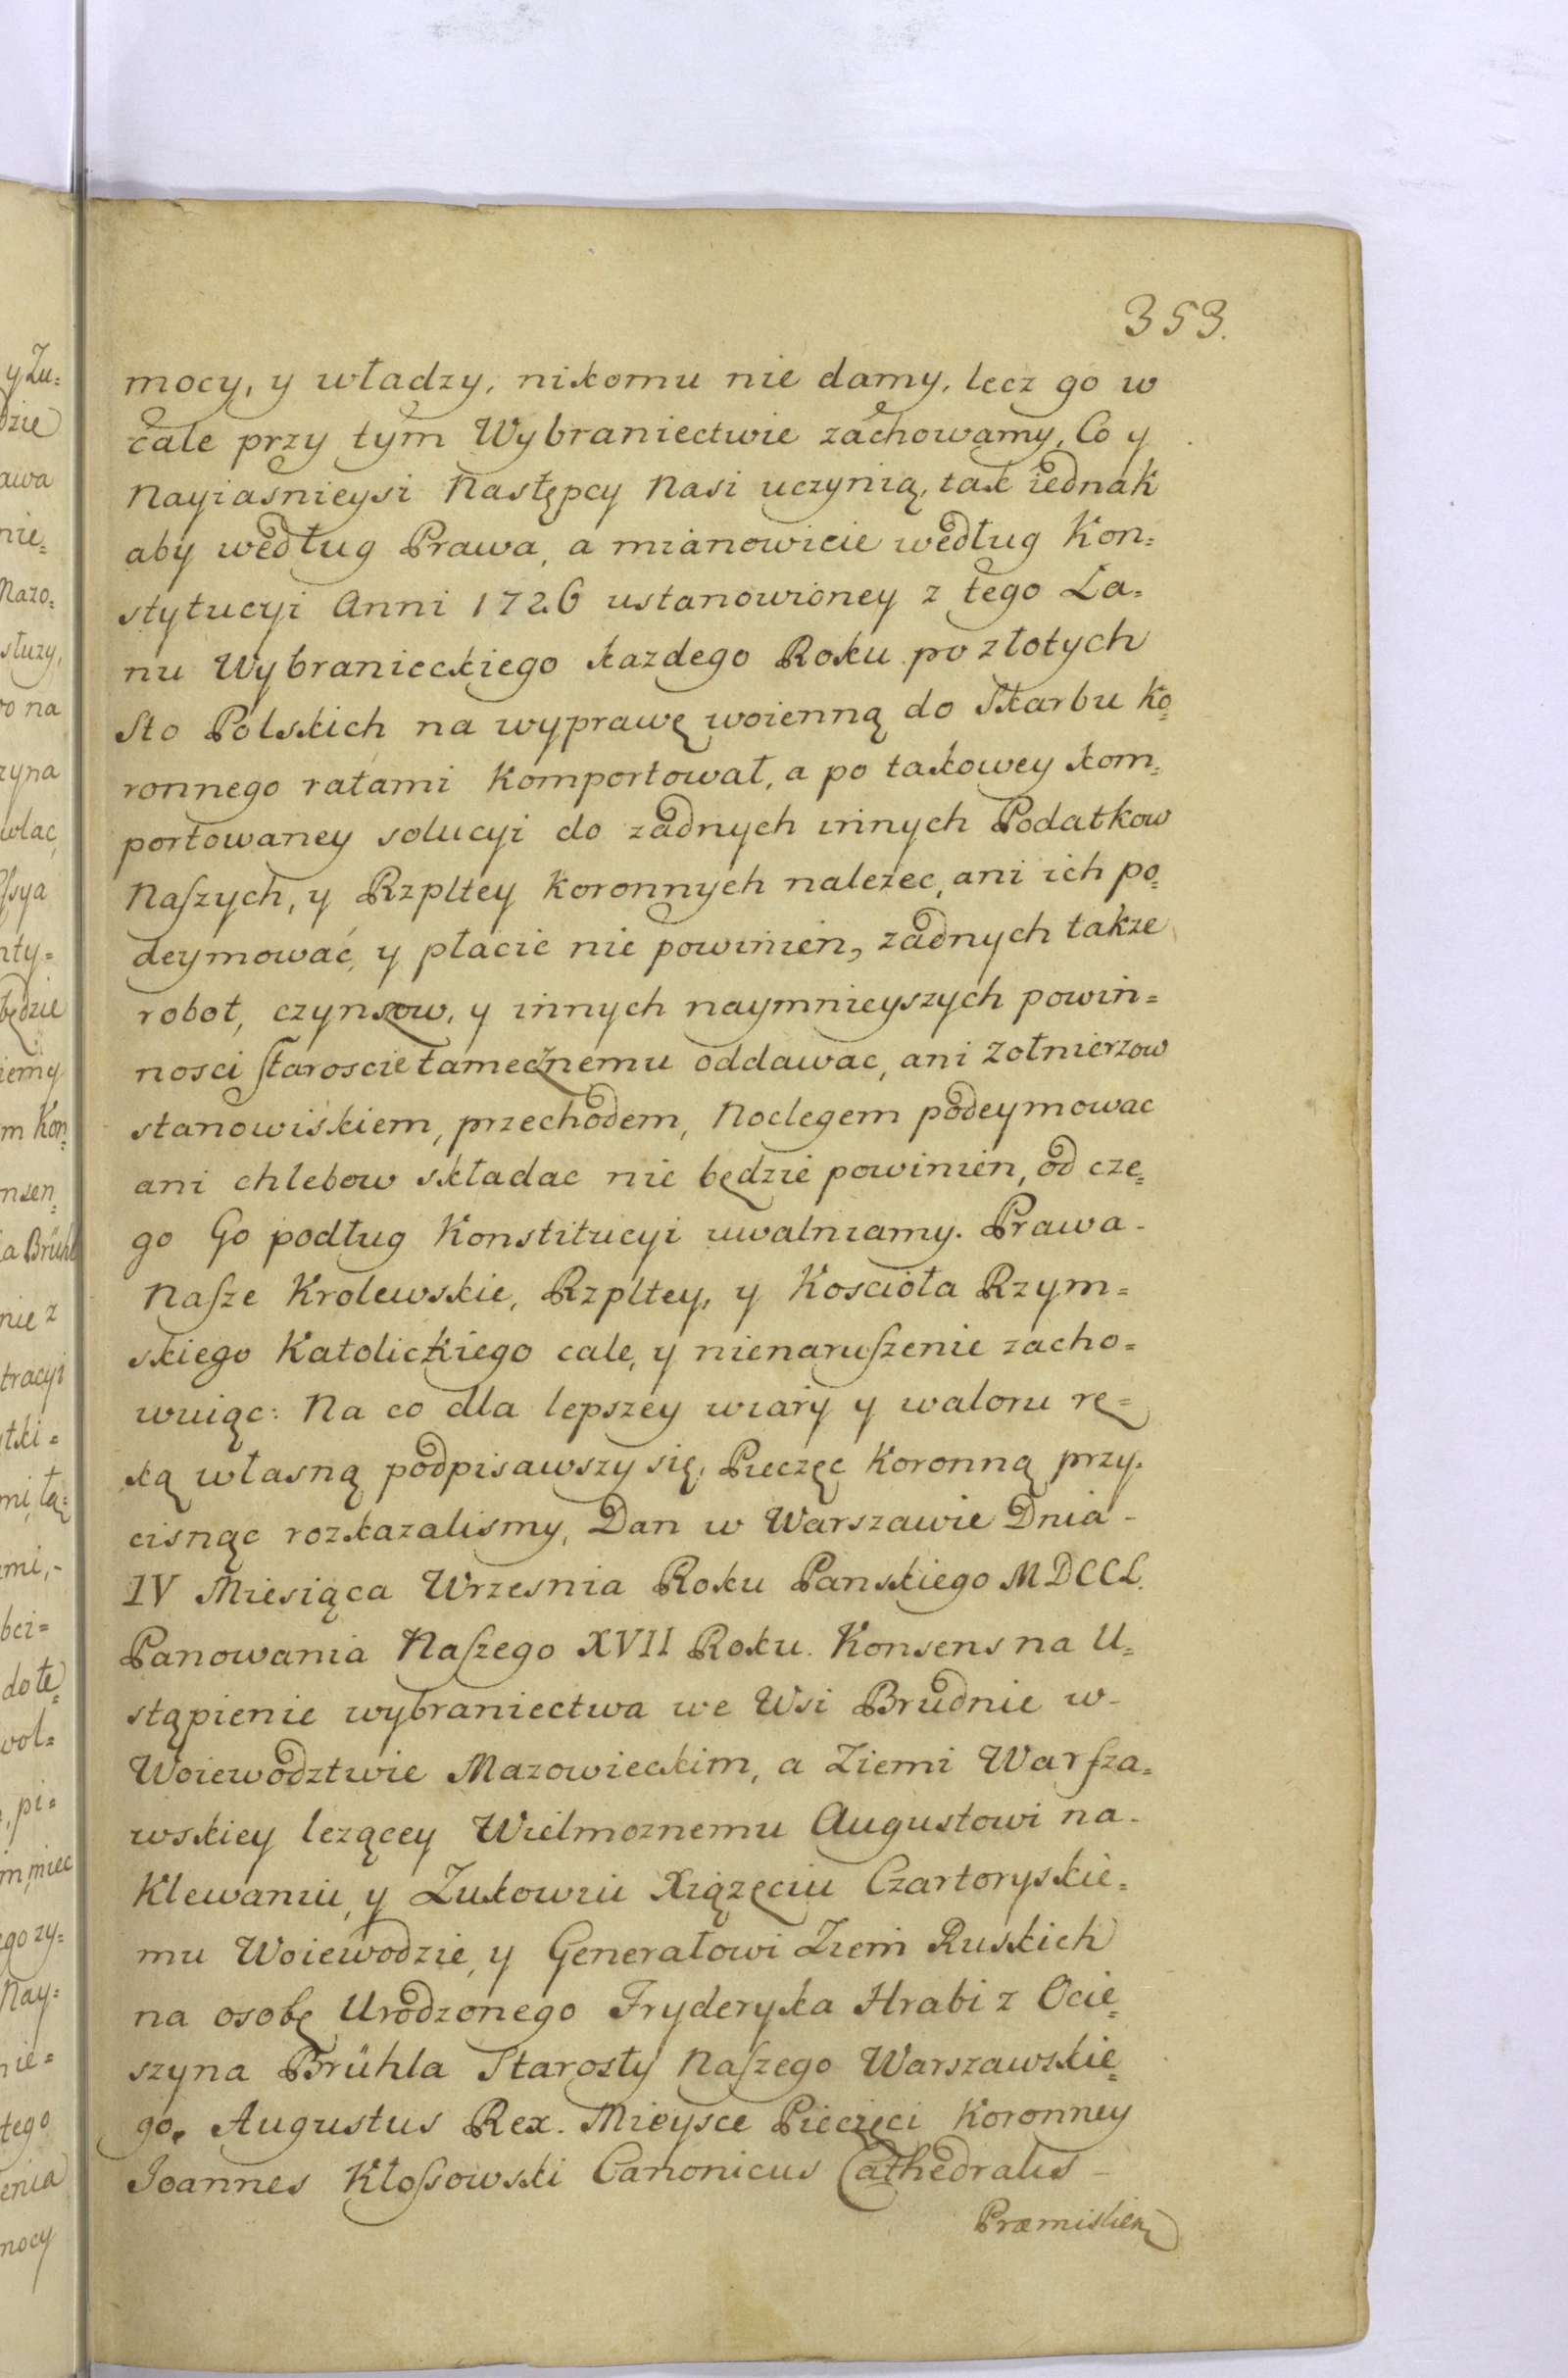 353.
mocy, y władzy, nikomu nie damy, lecz go w
cale przy tym Wybraniectwie zachowamy, Co y
Nayiasnieysi Następcy Nasi uczynią, tak iednak
aby według Prawa, a mianowicie według Kon=
stytucyi Anni 1726 ustanowioney z tego Ła=
nu Wybranieckiego kazdego Roku po złotych
Sto Polskich na wyprawę woienną do Skarbu Ko=
ronnego ratami Komportował, a po takowey kom=
portowaney solucyi do zadnych innych Podatkow
Naſzych, y Rzpltey Koronnych nalezec, ani ich po=
deymować, y płacic nie powinien, zadnych takze
robot, czynsow, y innych naymnieyszych powin=
nosci Staroscie tamecznemu oddawac, ani Zołnierzow
stanowiskiem, przechodem, Noclegem podeymowac
ani chlebow składac nie będzie powinien, od cze=
go Go podług Konstitucyi uwalniamy. Prawa-
Naſze Krolewskie, Rzpltey, y Koscioła Rzym=
skiego Katolickiego cale, y nienaruſzenie zacho=
wuiąc: Na co dla lepszey wiary y waloru rę=
ką własną podpisawszy się, Pieczęc Koronną przy-
cisnąc rozkazalismy, Dan w Warszawie Dnia-
IV Miesiąca Wrzesnia Roku Panskiego MDCCL.
Panowania Naſzego XVII Roku. Konsens na U=
stąpienie wybraniectwa we Wsi Brudnie w-
Woiewodztwie Mazowieckim, a Ziemi Warſza=
wskiey lezącey Wielmoznemu Augustowi na-
Klewaniu, y Zukowiu Xiązęciu Czartoryskie=
mu Woiewodzie, y Generałowi Ziem Ruskich
na osobę Urodzonego Fryderyka Hrabi z Ocie=
szyna Brühla Starosty Naſzego Warszawskie=
go. Augustus Rex. Mieysce Pieczęci Koronney
Joannes Kłoſsowski Canonicus Cathedralis-
Præmislien